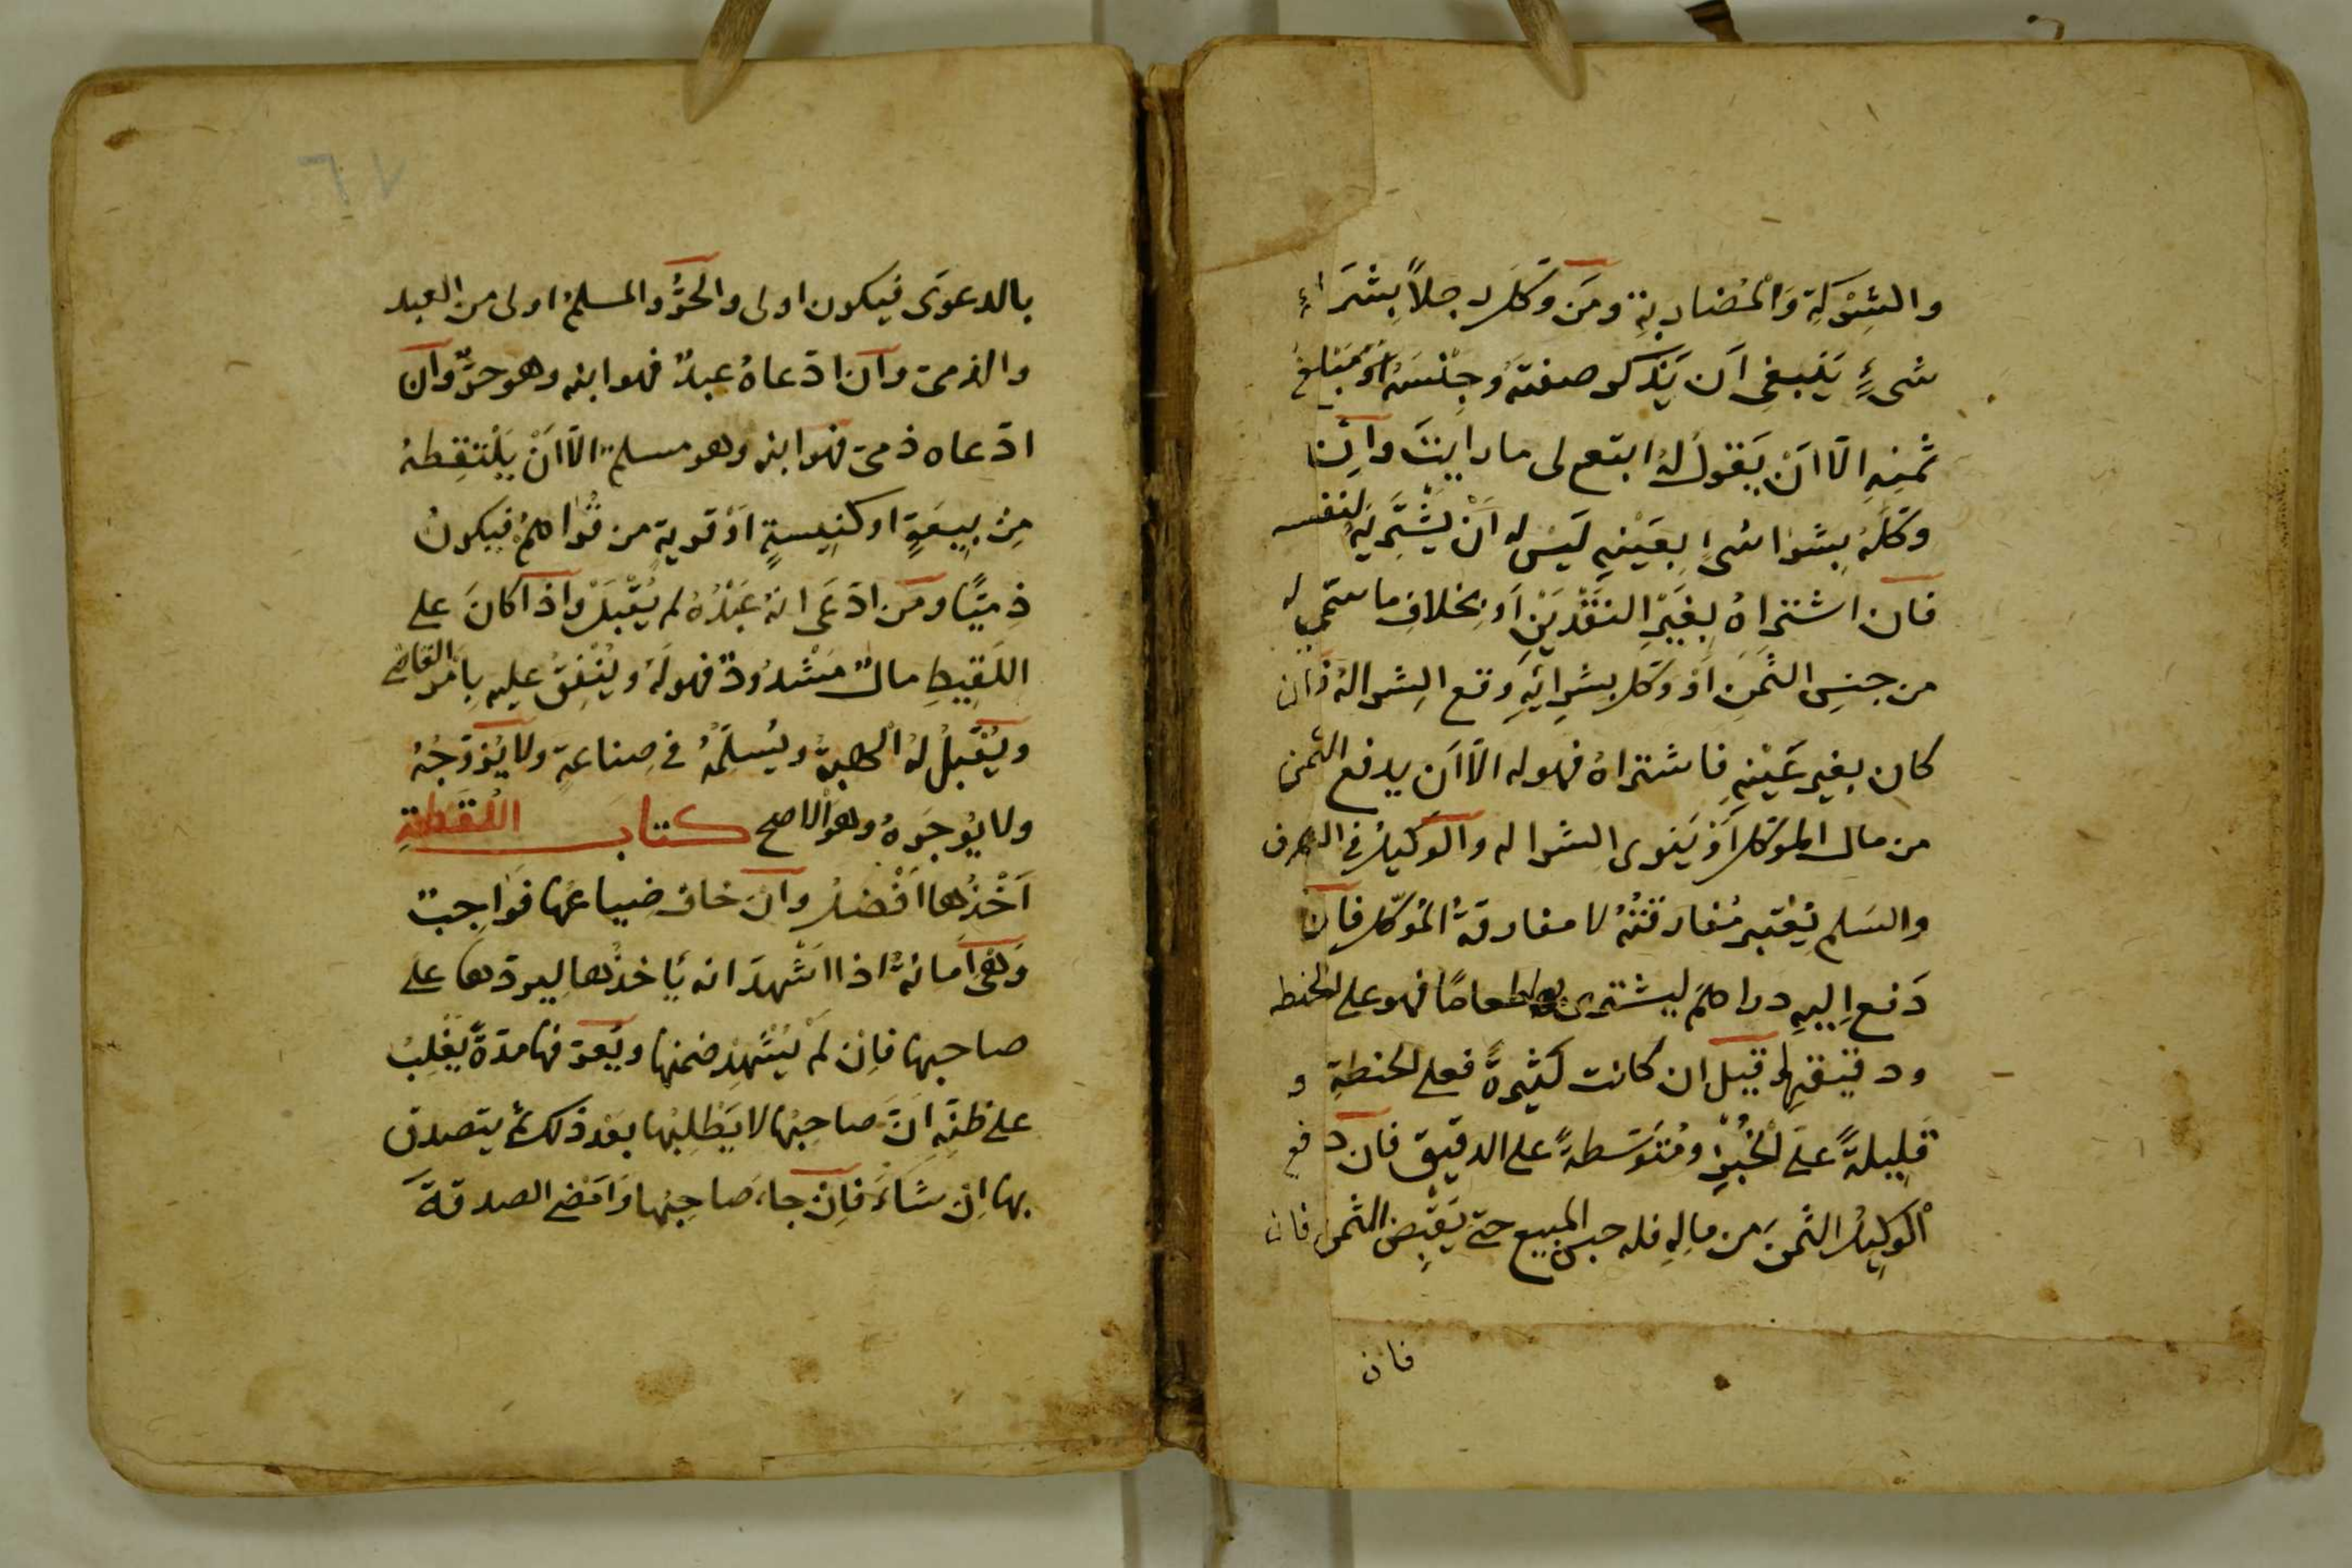 والشركة والمضاربة ومن وكل رجلاً بشراء
شيءٍ ينبغي أن يذكر صفته وجنسه أو مبلغ
ثمنه الّا أن يقول له ابتع لي ما رايت وان
وكله بشرا شيء بعينه ليس له أن يشتريه لنفسه
فان اشتراه بغير النقدين أو بخلاف ما سمى له
من جنس الثمن أو وكل بشرائه وقع الشرا له فان
كان بغير عينه فاشتراه فهو له الّا أن يدفع الثمن
من مال الموكل أو ينوي الشرا له والوكيل في الصرف
والسلم يعتبر مفارقته لا مفارقة الموكل فان
دفع اليه دراهم ليشتري بها طعامًا فهو على الحنطه
ودقيقها وقيل ان كانت كثيرةً فعلى الحنطة و
قليلةً على الخبز ومتوسطةً على الدقيق فان دفع
الوكيل الثمن من ماله فله حبس المبيع حتى يقبض الثمن فان
فان
٦٧
بالدعوى فيكون اولى والحرّ والمسلم اولى من العبد
والذمى وان ادّعاه عبدٌ فهو ابنه وهو حرّ وان
ادّعاه ذمىّ فهو ابنه وهو مسلم الّا أن يلتقطه
من بيعةٍ او كنيسةٍ أو قرية من قراهم فيكون
ذميًّا ومن ادّعى انه عبده لم يقبل واذا كان على
اللقيط مالٌ مشدودٌ فهو له وينفق عليه بأمر القاضى
ويقبل له الهبة ويسلمه في صناعة ولا يزوّجه
ولا يؤجره وهو الاصح كتاب اللقطة
أخذها أفضل وان خاف ضياعها فواجبٌ
وهى أمانة اذا اشهد انه يأخذها ليردّها على
صاحبها فان لم يشهد ضمنها ويعرّفها مدّةً يغلب
على ظنّه انّ صاحبها لا يطلبها بعد ذلك ثم يتصدق
بها ان شاء فان جاء صاحبها وامضى الصدقة